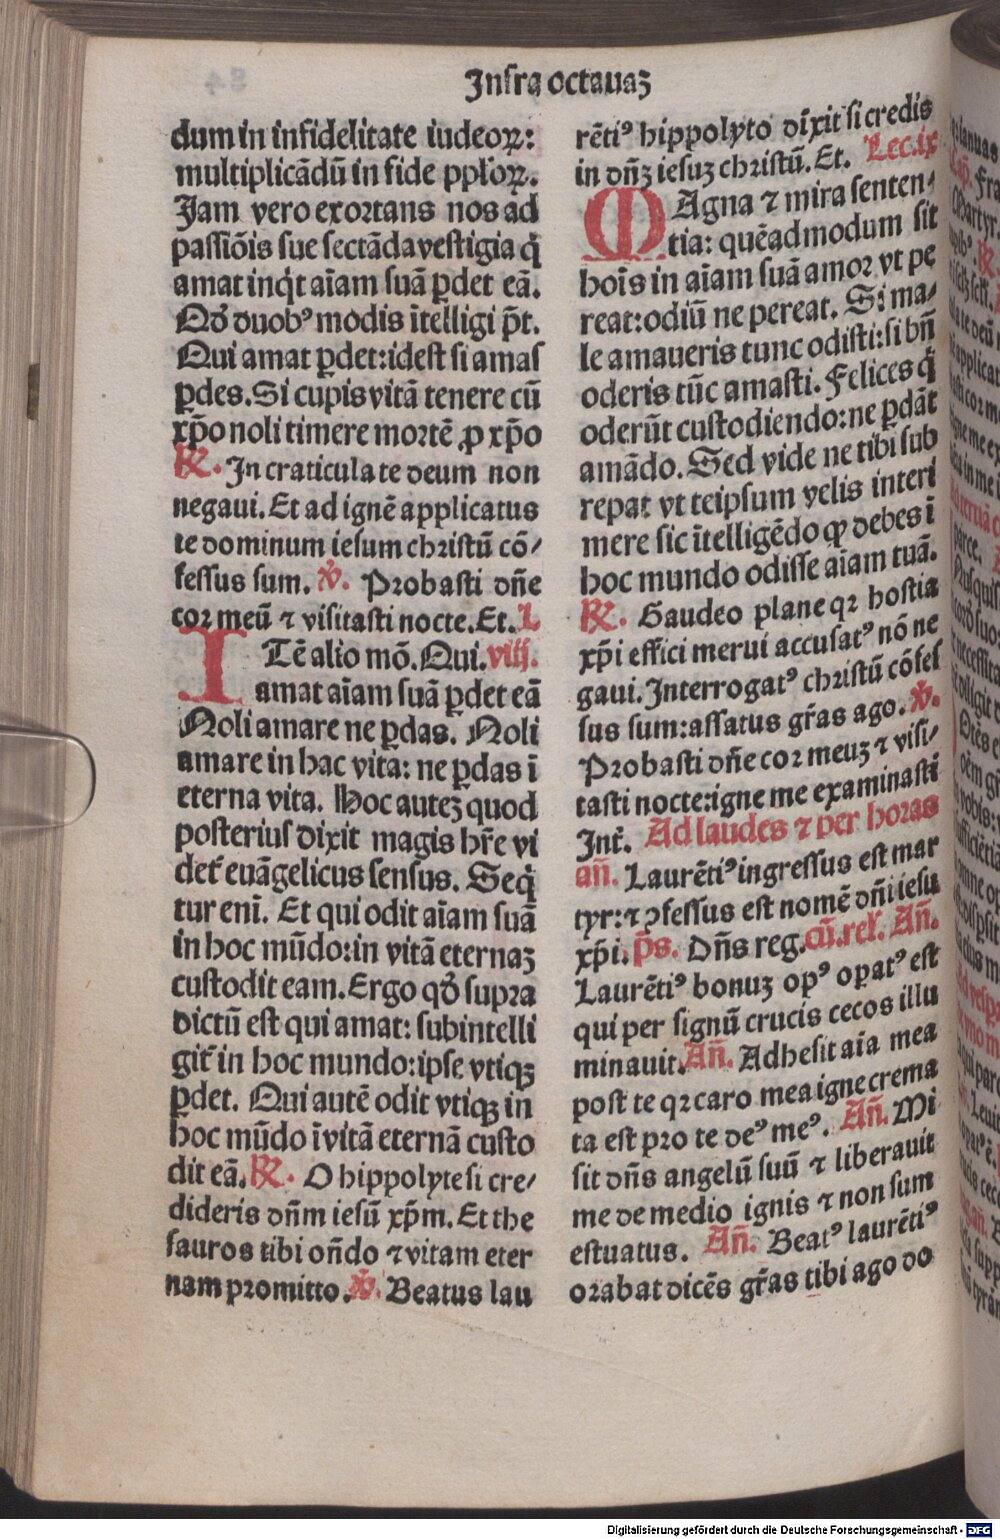 Infra octauaʒ
dum in infidelitate iudeoꝝ:
multiplicãdũ in fide ppłoꝝ.
Jam vero exortans nos ad
passiõis sue sectãda vestigia q̃
amat inq̇t aĩam suã ꝑdet eã.
Qď duobꝰ modis ĩtelligi p̃t.
Qui amat ꝑdet: idest si amas
ꝑdes. Si cupis vitã tenere cũ
xp̃o noli timere mortẽ ꝓ xp̃o
℞. In craticula te deum non
negaui. Et ad ignẽ applicatus
te dominum iesum christũ cõ/
fessus sum. ℣. Probasti dñe
cor meũ ⁊ visitasti nocte. Et. L
ITẽ alio mõ. Qui. viij.
amat aĩam suã ꝑdet eã
Noli amare ne ꝑdas. Noli
amare in hac vita: ne ꝑdas ĩ
eterna vita. Hoc auteʒ quod
posterius dixit magis hr̃e vi
det̃ euãgelicus sensus. Seq̃
tur eni̅. Et qui odit aĩam suã
in hoc mũdo: in vitã eternaʒ
custodit eam. Ergo qď supra
dictũ est qui amat: subintelli
git̃ in hoc mundo: ipse vtiqꝫ
ꝑdet. Qui autẽ odit vtiqꝫ in
hoc mũdo ĩ vitã eternã custo
dit eã. ℞. O hippolyte si cre/
dideris dñm iesũ xp̃m. Et the
sauros tibi oñdo ⁊ vitam eter
nam promitto. ℣. Beatus lau
rẽtiꝰ hippolyto dixit si credis
in dñʒ iesuʒ christũ. Et. Lec. ix
MAgna ⁊ mira senten/
tia: quẽadmodum sit
hoĩs in aĩam suã amor vt pe
reat: odiũ ne pereat. Si ma/
le amaueris tunc odisti: si bñ
oderis tũc amasti. Felices q̃
oderũt custodiendo: ne ꝑdãt
amãdo. Sed vide ne tibi sub
repat vt teipsum velis interi
mere sic ĩtelligẽdo ꝙ debes ĩ
hoc mundo odisse aĩam tuã.
℞. Gaudeo plane qꝛ hostia
xp̃i effici merui accusatꝰ nõ ne
gaui. Interrogatꝰ christũ cõfes
sus sum: assatus gr̃as ago. ℣.
Probasti dñe cor meuʒ ⁊ visi/
tasti nocte: igne me examinasti
Int̃. Ad laudes ⁊ per horas
añ. Laurẽtiꝰ ingressus est mar
tyr: ⁊ ꝯfessus est nomẽ dñi iesu
xp̃i. p̃s. Dñs reg. cũ. rel̃. Añ.
Laurẽtiꝰ bonuʒ opꝰ oꝑatꝰ est
qui per signũ crucis cecos illu
minauit. Añ. Adhesit aia mea
post te qꝛ caro mea igne crema
ta est pro te deꝰ meꝰ. Añ. Mi
sit dñs angelũ suũ ⁊ liberauit
me de medio ignis ⁊ non sum
estuatus. Añ. Beatꝰ laurẽtiꝰ
orabat dicẽs gr̃as tibi ago do
Digitalisierung gefördert durch die Deutsche Forschungsgemeinschaft - DFG